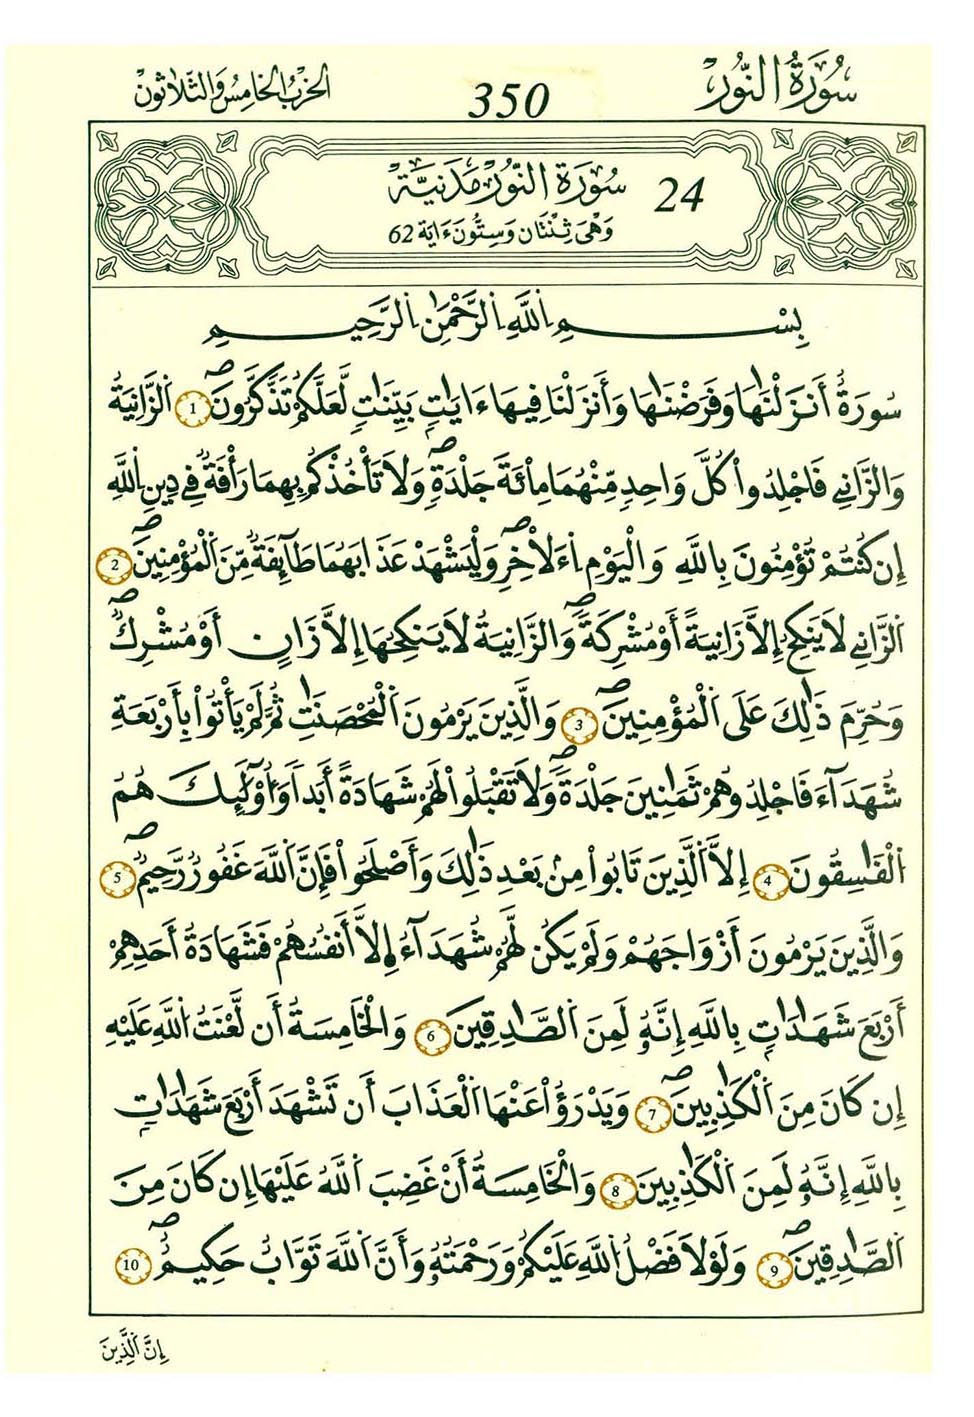 سُورَةُ النُّور 350 الحزب الخامس والثلاثون
24 سُورَةُ النُّورِ مَدَنِيَّة
وَهْيَ ثِنْتَانِ وَسِتُّونَ ءَايَة 62
بِسْمِ اِللَّهِ اِلرَّحْمَٰنِ اِلرَّحِيمِ
سُورَةٌ أَنزَلْنَٰهَا وَفَرَضْنَٰهَا وَأَنزَلْنَا فِيهَا ءَايَٰتٍ بَيِّنَٰتٍ لَّعَلَّكُمْ تَذَّكَّرُونَ 1 اَلزَّانِيَةُ
وَالزَّانِے فَاجْلِدُواْ كُلَّ وَاحِدٍ مِّنْهُمَا مِاْئَةَ جَلْدَةٍ وَلَا تَأْخُذْكُم بِهِمَا رَأْفَةٌ فِے دِينِ اِللَّهِ
إِن كُنتُمْ تُؤْمِنُونَ بِاللَّهِ وَالْيَوْمِ اِءَلَاخِرِ وَلْيَشْهَدْ عَذَابَهُمَا طَآئِفَةٌ مِّنَ اَلْمُؤْمِنِينَ 2
اَلزَّانِے لَا يَنكِحُ إِلَّا زَانِيَةً أَوْ مُشْرِكَةً وَالزَّانِيَةُ لَا يَنكِحُهَا إِلَّا زَانٍ أَوْ مُشْرِكٌ
وَحُرِّمَ ذَٰلِكَ عَلَى اَلْمُؤْمِنِينَ 3 وَالَّذِينَ يَرْمُونَ اَلْمُحْصَنَٰتِ ثُمَّ لَمْ يَأْتُواْ بِأَرْبَعَةِ
شُهَدَآءَ فَاجْلِدُوهُمْ ثَمَٰنِينَ جَلْدَةً وَلَا تَقْبَلُواْ لَهُمْ شَهَادَةً أَبَداً وَأُوْلَٰٓئِكَ هُمُ
اُلْفَٰسِقُونَ 4 إِلَّا اَلَّذِينَ تَابُواْ مِنۢ بَعْدِ ذَٰلِكَ وَأَصْلَحُواْ فَإِنَّ اَللَّهَ غَفُورٌ رَّحِيمٌ 5
وَالَّذِينَ يَرْمُونَ أَزْوَاجَهُمْ وَلَمْ يَكُن لَّهُمْ شُهَدَآءُ إِلَّا أَنفُسُهُمْ فَشَهَادَةُ أَحَدِهِمْ
أَرْبَعَ شَهَٰدَٰتٍ بِاللَّهِ إِنَّهُۥ لَمِنَ اَلصَّٰدِقِينَ 6 وَالْخَامِسَةُ أَن لَّعْنَتُ اُللَّهِ عَلَيْهِ
إِن كَانَ مِنَ اَلْكَٰذِبِينَ 7 وَيَدْرَؤُاْ عَنْهَا اَلْعَذَابَ أَن تَشْهَدَ أَرْبَعَ شَهَٰدَٰتٍ
بِاللَّهِ إِنَّهُۥ لَمِنَ اَلْكَٰذِبِينَ 8 وَالْخَامِسَةُ أَنْ غَضِبَ اَللَّهُ عَلَيْهَا إِن كَانَ مِنَ
اَلصَّٰدِقِينَ 9 وَلَوْلَا فَضْلُ اُللَّهِ عَلَيْكُمْ وَرَحْمَتُهُۥ وَأَنَّ اَللَّهَ تَوَّابٌ حَكِيمٌ 10
إِنَّ اَلَّذِينَ